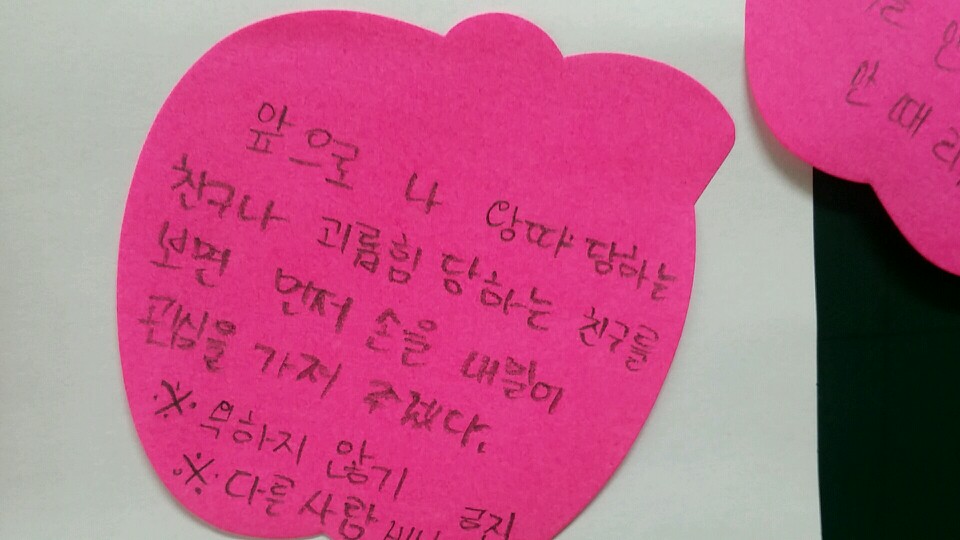 앞으로 나 왕따 당하는
친구나 괴롭힘 당하는 친구를
보면 먼저 손을 내밀어
관심을 가져 주겠다.
※ 욕하지 않기
※ 다른사람 금지
안 때리